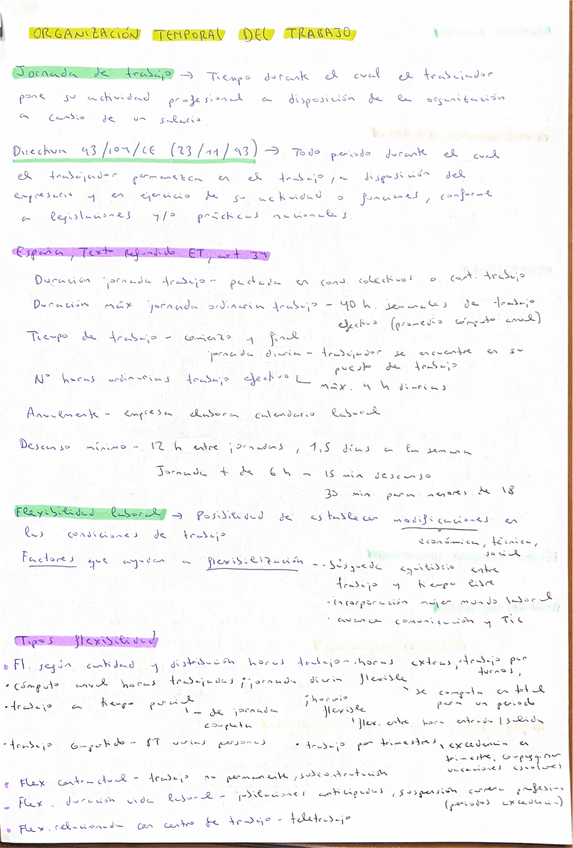 ORGANIZACIÓN TEMPORAL DEL TRABAJO
Jornada de trabajo → Tiempo durante el cual el trabajador
pone su actividad profesional a disposición de la organización
a cambio de un salario
Directiva 93/104/CE (23/11/93) → Todo periodo durante el cual
el trabajador permanezca en el trabajo, a disposición del
empresario y en ejercicio de su actividad o funciones, conforme
a legislaciones y/o prácticas nacionales.
España, Texto Refundido ET, art 34
Duración jornada trabajo - pactada en conv. colectivos o cont. trabajo
Duración máx jornada ordinaria trabajo - 40 h. semanales de trabajo
efectivo (promedio cómputo anual)
Tiempo de trabajo - comienzo y final
jornada diaria - trabajador se encuentre en su
puesto de trabajo
Nº horas ordinarias trabajo efectivo
máx. 9 h diarias
Anualmente - empresa elabora calendario laboral
Descanso mínimo - 12 h entre jornadas, 1,5 días a la semana
Jornada + de 6 h - 15 min descanso
30 min para menores de 18
Flexibilidad laboral → Posibilidad de establecer modificaciones en
las condiciones de trabajo
económica, técnica,
social
Factores que ayudan a flexibilización - · búsqueda equilibrio entre
trabajo y tiempo libre
· incorporación mujer mundo laboral
· avance comunicación y TIC
Tipos flexibilidad
· Fl. según cantidad y distribución horas trabajo - horas extras, trabajo por
turnos,
· cómputo anual horas trabajadas; jornada diaria flexible
se computa en total
para un periodo
· trabajo a tiempo parcial
- de jornada
completa
; horario
flexible
flex. entre hora entrada / salida
· trabajo compartido - PT varias personas
· trabajo por trimestres, excedencia en
trimestre, compaginar
vacaciones escolares
· Flex contractual - trabajo no permanente, subcontratación
· Flex. duración vida laboral - jubilaciones anticipadas, suspensión carrera profesional
(periodos excedencia)
· Flex. relacionada con centro de trabajo - teletrabajo